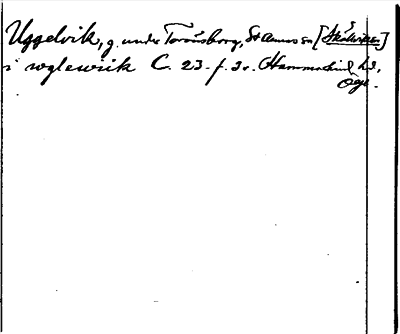 Uggelvik, g. under Torönsborg, St Annas sn [Skällvikssn]
i wglewiik C. 23 f. 3v. Hammarkind hd,
Ögl.